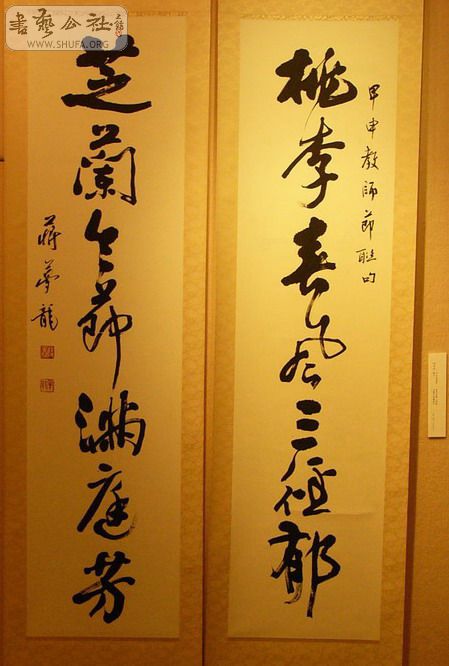 書藝公社
WWW.SHUFA.ORG
甲申教師節聯句
桃李春風三徑郁
芝蘭令節滿庭芳
蔣夢龍